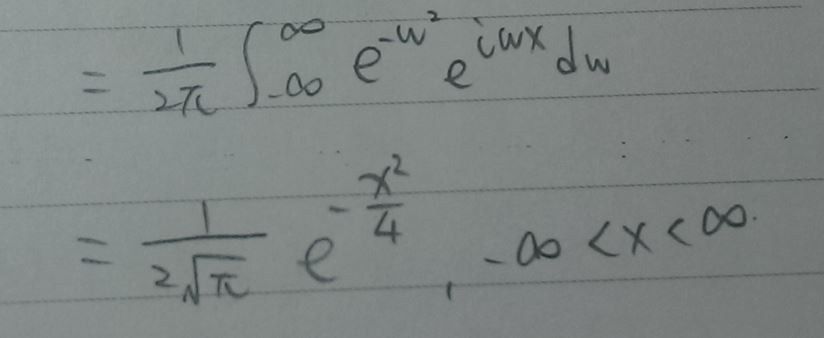 = \frac{1}{2π} ∫_{-∞}^{∞} e^{-w²} e^{iwx} dw
= \frac{1}{2√π} e^{-\frac{x²}{4}} , -∞ < x < ∞.